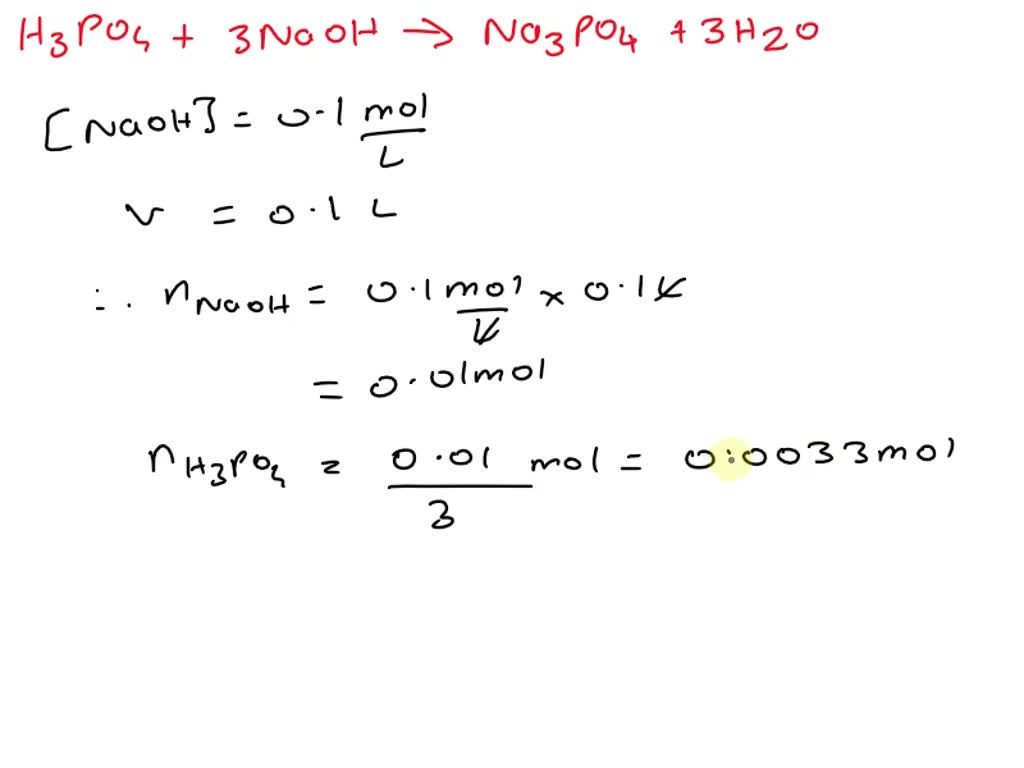 H₃PO₄ + 3NaOH → Na₃PO₄ + 3H₂O
[NaOH] = 0.1 mol/L
V = 0.1 L
∴ n NaOH = 0.1 mol/L × 0.1 L
= 0.01 mol
n H₃PO₄ = 0.01/3 mol = 0.0033 mol